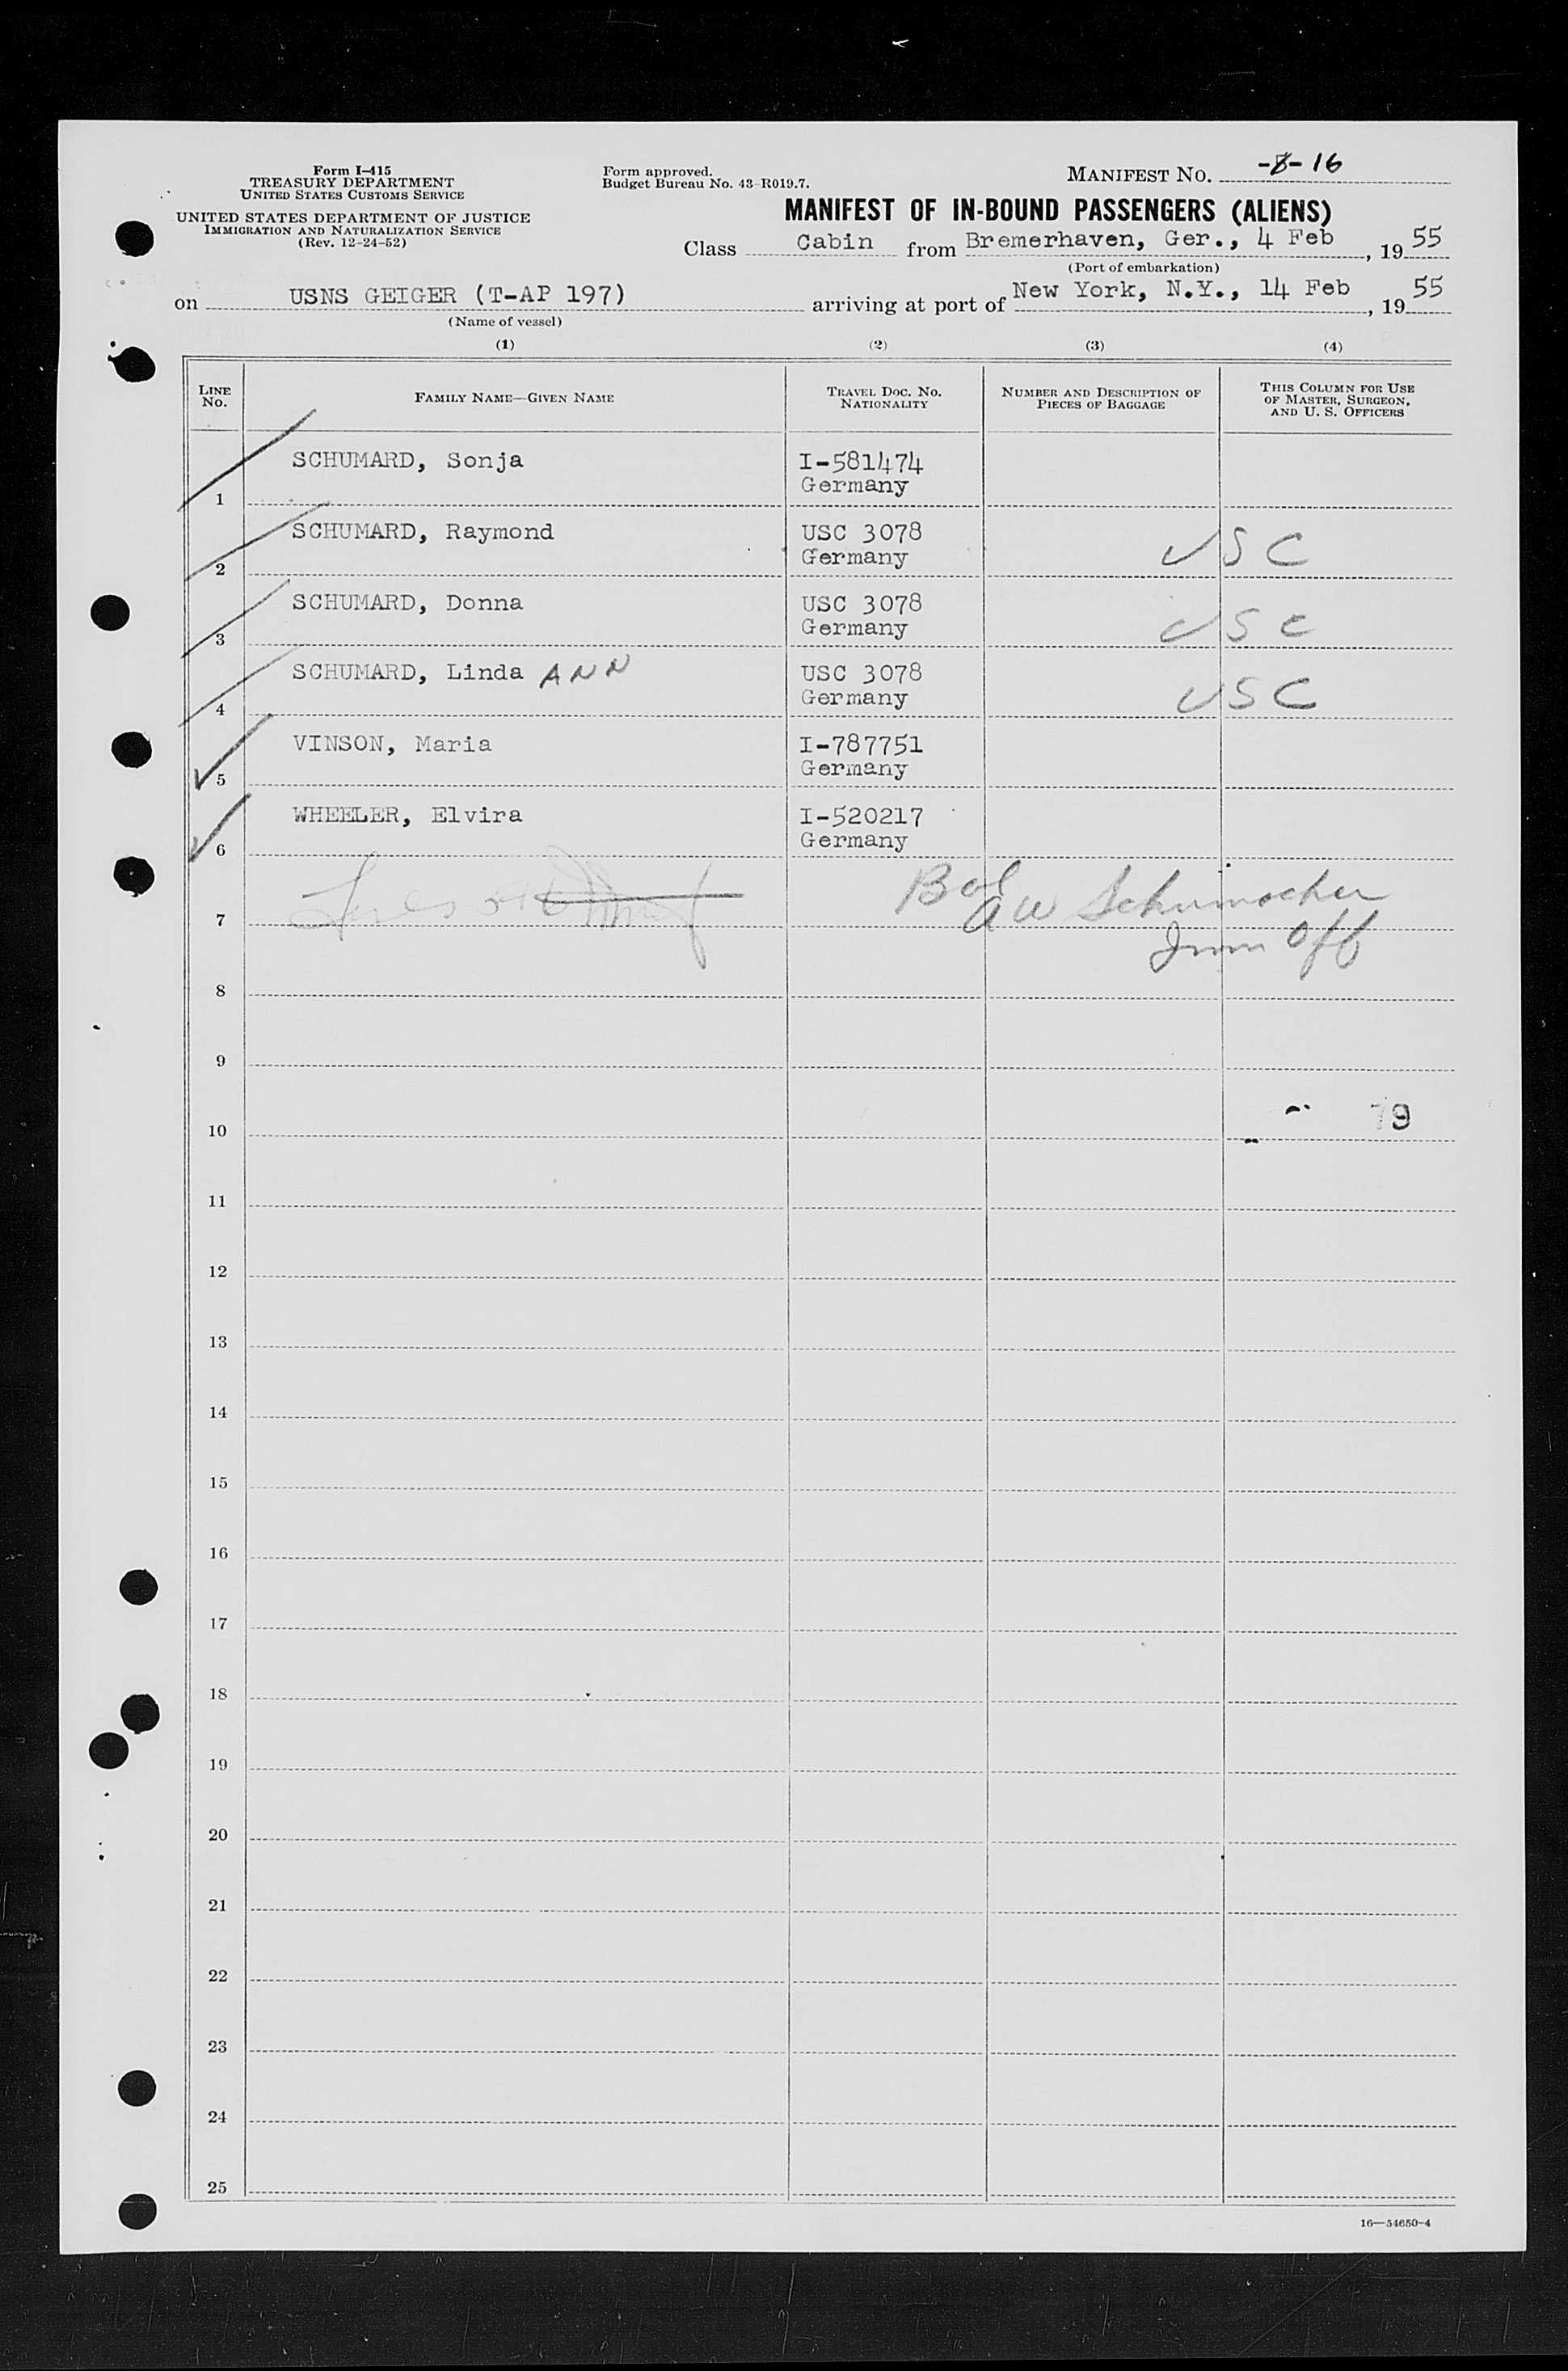 Form I-415
TREASURY DEPARTMENT
UNITED STATES CUSTOMS SERVICE
UNITED STATES DEPARTMENT OF JUSTICE
IMMIGRATION AND NATURALIZATION SERVICE
(Rev. 12-24-52)
Form approved.
Budget Bureau No. 43-R019.7.
MANIFEST NO. -8- 16
MANIFEST OF IN-BOUND PASSENGERS (ALIENS)
Class Cabin from Bremerhaven, Ger., 4 Feb, 1955
(Port of embarkation)
on USNS GEIGER (T-AP 197) arriving at port of New York, N.Y., 14 Feb, 1955
(Name of vessel)
(1) (2) (3) (4)
LINE NO. FAMILY NAME—GIVEN NAME TRAVEL DOC. NO. NATIONALITY NUMBER AND DESCRIPTION OF PIECES OF BAGGAGE THIS COLUMN FOR USE OF MASTER, SURGEON, AND U. S. OFFICERS
1 SCHUMARD, Sonja I-581474 Germany
2 SCHUMARD, Raymond USC 3078 Germany USC
3 SCHUMARD, Donna USC 3078 Germany USC
4 SCHUMARD, Linda ANN USC 3078 Germany USC
5 VINSON, Maria I-787751 Germany
6 WHEELER, Elvira I-520217 Germany
7 A W Schumacher
Imm Off
8
9
10 79
11
12
13
14
15
16
17
18
19
20
21
22
23
24
25
16—54650-4